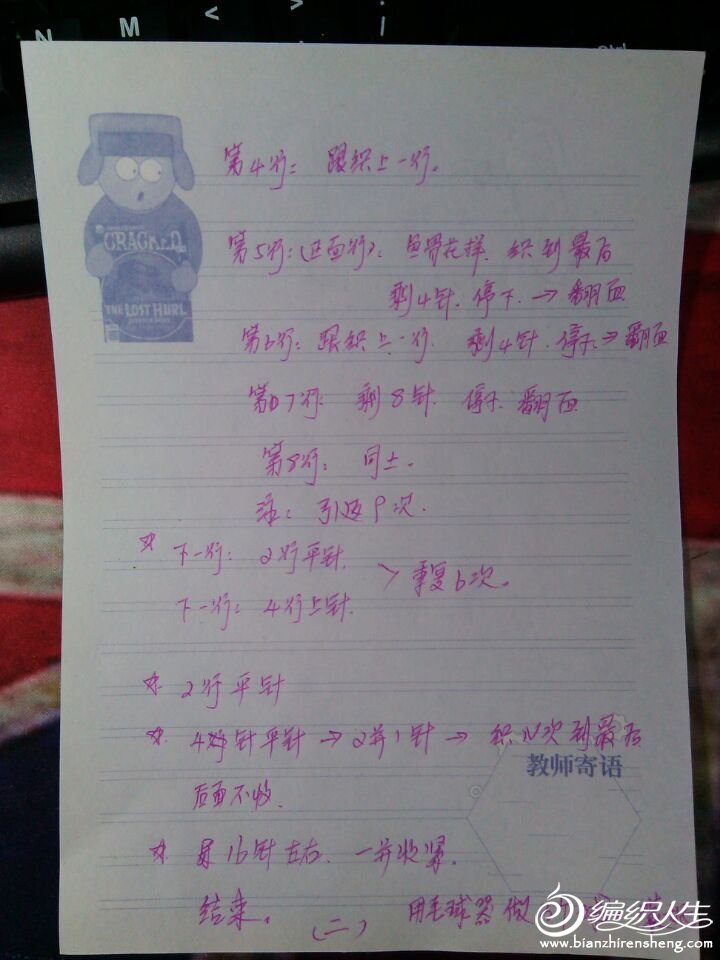 N M < > ;
Ctrl
第4行：跟织上一行。
CRACKED
THE LOST HURL
第5行：（正面行）：鱼骨花样．织到最后
剩4针．停下．→翻面
第6行：跟织上一行．剩4针．停下→翻面
第7行：剩8针．停下．翻面
第8行：同上．
注：引返9次．
☆ 下一行：2行平针．
下一行：4行上针． > 重复6次。
☆ 2行平针
☆ 4针平针→2并1针→织N次到最后
教师寄语
后面不收．
☆ 16针左右．一并收紧．
结束。 （二） 用毛球器做
编织人生
www.bianzhirensheng.com